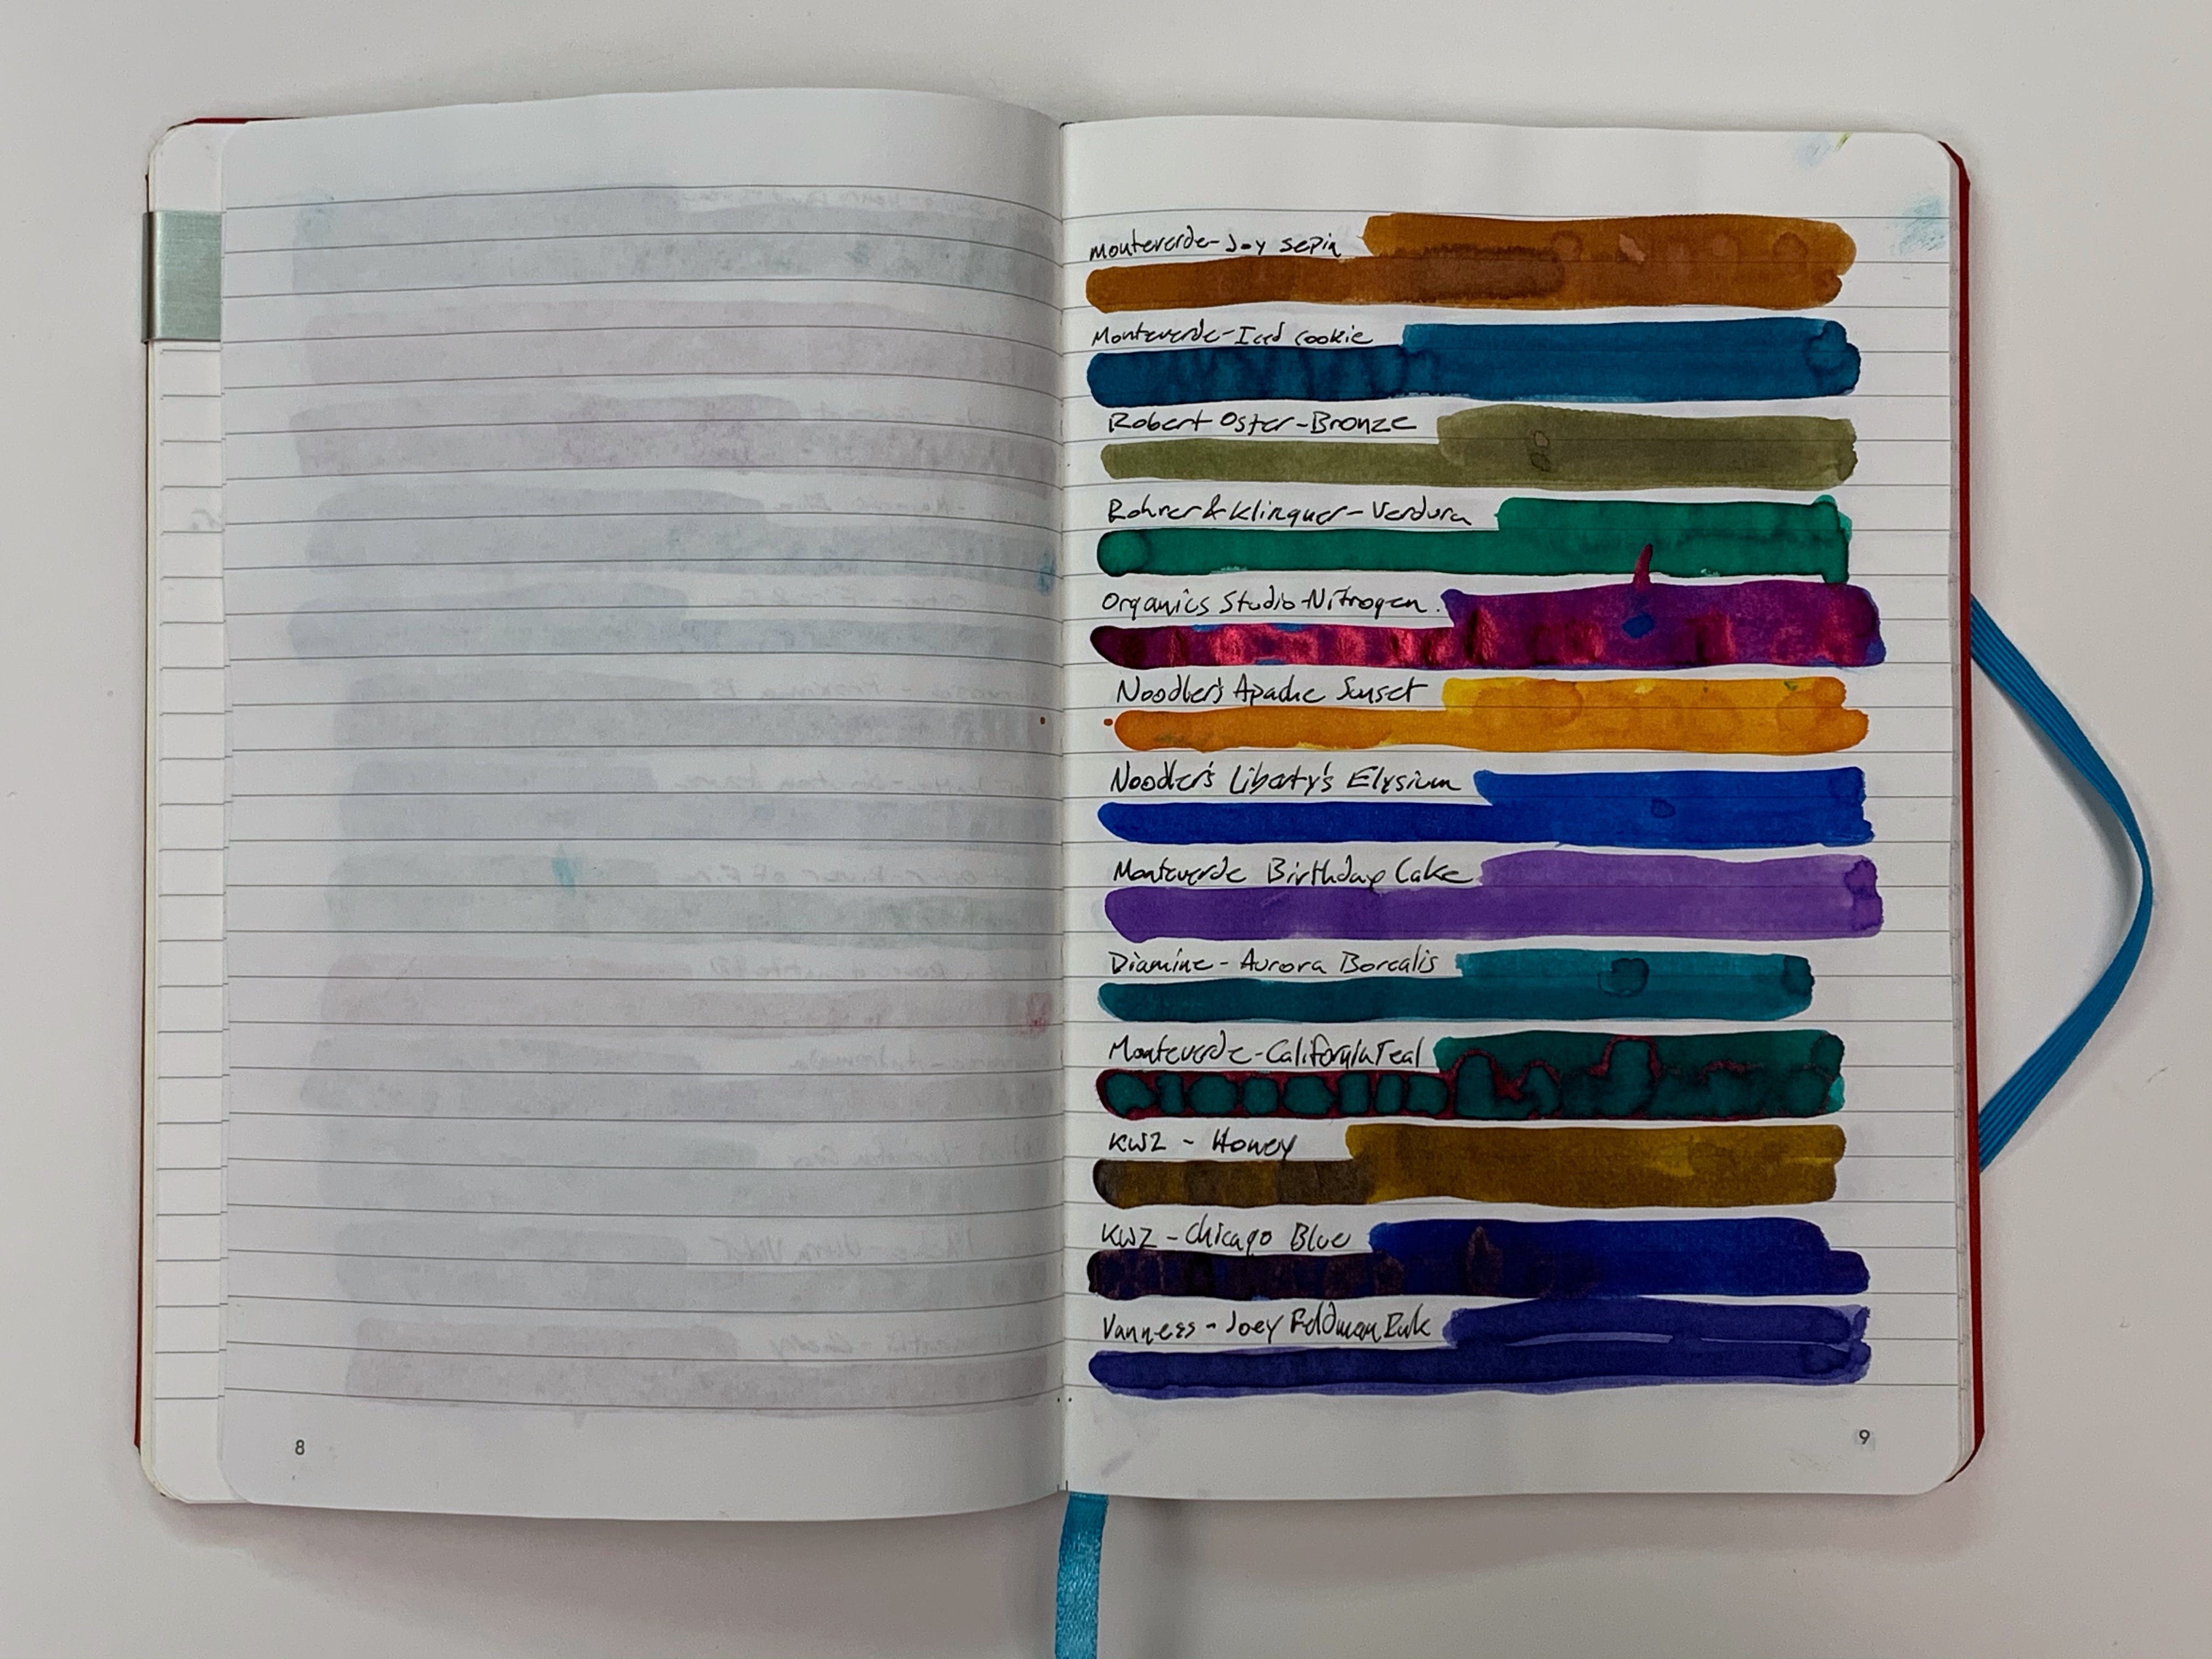 Monteverde-Joy Sepia
Monteverde-Iced Cookie
Robert Oster-Bronze
Rohrer & Klinguer-Verdura
Organics Studio-Nitrogen.
Noodler's Apache Sunset
Noodler's Liberty's Elysium
Monteverde Birthday Cake
Diamine-Aurora Borealis
Monteverde-California Teal
KWZ - Honey
KWZ - Chicago Blue
Vanness-Joey Feldman
8
9